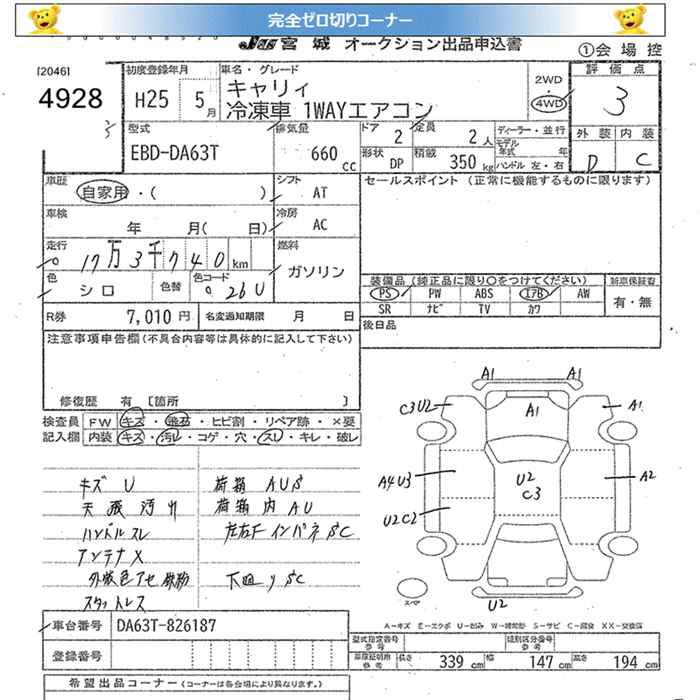 完全ゼロ切りコーナー
JU 宮城 オークション出品申込書
①会場控
[2046]
4928
初度登録年月
H25 5月
車名・グレード
キャリィ
冷凍車 1WAYエアコン
2WD
4WD
評価点
3
外装 内装
D C
型式
EBD-DA63T
排気量
660 cc
ドア 2
形状 DP
定員 2人
積載 350 kg
ディーラー・並行
モデル年式 年
ハンドル 左・右
車歴
自家用・( )
シフト
AT
セールスポイント (正常に機能するものに限ります)
車検
年 月( 日)
冷房
AC
走行
17万3千740 km
燃料
ガソリン
色
シロ
色替
色コード
26U
装備品 (純正品に限り○をつけてください)
新車保証書
PS PW ABS エアB AW
有・無
SR ナビ TV カワ
R券 7,010円
名変通知期限 月 日
後日品
注意事項申告欄(不具合内容等は具体的に記入して下さい)
修復歴 有 [箇所 ]
検査員
記入欄
FW キズ・飛石・ヒビ割・リペア跡・×要
内装 キズ・汚レ・コゲ・穴・スレ・キレ・破レ
キズ U
天張汚れ
ハンドルスレ
アンテナX
外板色アセ 鉄粉
スタットレス
荷箱 AUS
荷箱内 AU
左右Fインパネ SC
下廻り SC
A1
A1
C3U2
A1
A1
A4U3
U2
C3
A2
U2C2
U2
スペア
A－キズ E－エクボ U－凹み W－補修跡 S－サビ C－腐食 XX－交換済
車台番号 DA63T-826187
登録番号
型式指定番号
類別区分番号
車庫証明用 長さ 339 cm 幅 147 cm 高さ 194 cm
希望出品コーナー (コーナーは各会場により異なります)